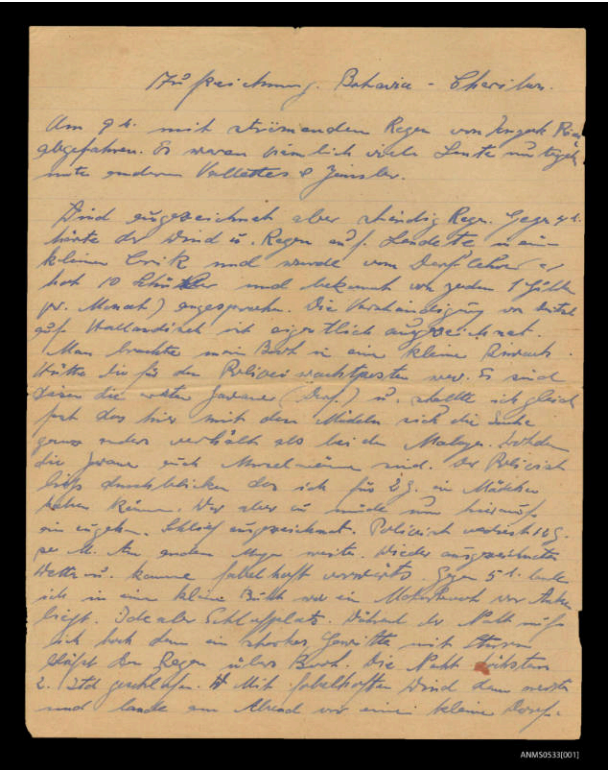 Aufzeichnung. Batavia - Cheribon.
Am 9 h. mit strömendem Regen von Tanjok
abgefahren. Es waren ziemlich viele Leute
unter anderem
Wind ausgezeichnet aber ständig Regen. Gegen
hörte der Wind u. Regen auf. Landete in ein
kleinen Crik und wurde vom Dorflehrer er
hat 10 Schüler und bekommt von jedem 1
pr. Monat) angesprochen. Die Verständigung von
auf Holländisch ist eigentlich ausgezeichnet.
Man brachte mein Boot in eine kleine
Hütte die für den Polizei wachtposten war. Es sind
dieses die ersten Javaner (Dorf) u. stellte ich gleich
fest das hier mit den Mädeln sich die Sache
ganz anders verhält als bei den Malayen. trotzdem
die Javaner auch sind. Der Polizist
ließ durchblicken das ich für 2 g. ein Mädchen
haben könne. War aber zu müde um hierauf
ein zugehn. Schlief ausgezeichnet. Polizist verdient 10 g.
per M. Am andern Morgen weiter. Wieder ausgezeichnetes
Wetter u. komme fabelhaft vorwärts. Gegen 5 h. lande
ich in eine kleine Bucht wo ein Motorboot vor Anker
liegt. Idealer Schlafplatz. Während der Nacht muß
ich hoch denn ein starkes Gewitter mit Sturm
den Regen übers Boot. Die Nacht höchstens
2. Std geschlafen. Mit fabelhaften Wind dann weiter
und lande am Abend vor einem kleinen Dorf.
ANMS0533[001]